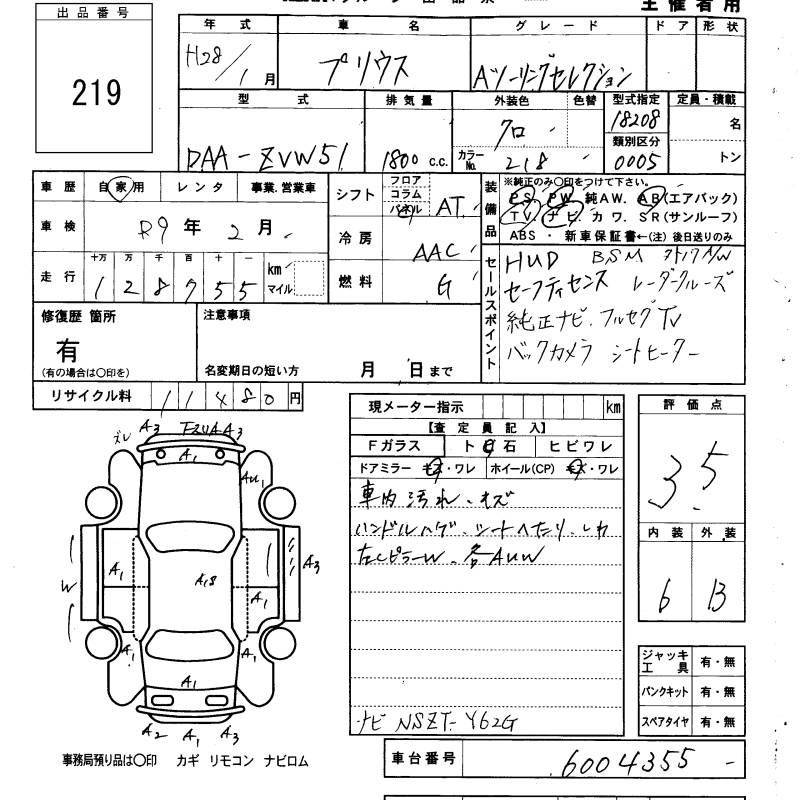 出品番号
219
主催者用
年式 車名 グレード ドア 形状
H28/1月 プリウス Aツーリングセレクション
型式 排気量 外装色 色替 型式指定 定員・積載
DAA-ZVW51 1800 c.c. クロ 18208 名
カラーNo. 218 類別区分 0005 トン
車歴 自家用 レンタ 事業.営業車
車検 R9年 2月
走行 十万 万 千 百 十 一
128755 km マイル
シフト フロア コラム パネル AT
冷房 AAC
燃料 G
装備品
※純正のみ○印をつけて下さい。
PS. PW. 純AW. AB(エアバック)
TV. ナビ. カワ. SR(サンルーフ)
ABS・ 新車保証書←(注) 後日送りのみ
セールスポイント
HUD BSM
セーフティセンス レーダークルーズ
純正ナビ.フルセグTV
バックカメラ シートヒーター
修復歴 箇所
有
(有の場合は○印を)
注意事項
名変期日の短い方 月 日まで
リサイクル料 11480円
現メーター指示 km
【査定員記入】
Fガラス ト石 ヒビワレ
ドアミラー キズ・ワレ ホイール(CP) キズ・ワレ
車内汚れ.キズ
ハンドルハゲ.シートヘたり.シワ
左CピラーW.各AUW
ナビ NSZT-Y62G
評価点
3.5
内装 外装
6 B
ジャッキ工具 有・無
パンクキット 有・無
スペアタイヤ 有・無
ズレ A3 A3
A1 AU1
W A1 A18 A1 A3
A1 A1
A1
A2 A1 A3
事務局預り品は○印 カギ リモコン ナビロム
車台番号 6004355